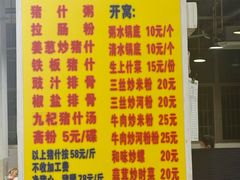 猪什粥
拉肠粉
姜葱炒猪什
铁板猪什
豉汁排骨
椒盐排骨
九杞猪什汤
斋粉 5元/碟
以上猪什按58元/斤
不收加工费
开窝:
粥水锅底 10元/个
清水锅底 10元/个
生上什菜 15元/份
三丝炒米粉 20元
三丝炒河粉 20元
牛肉炒米粉 25元
牛肉炒河粉 25元
和味炒螺 20元
蒜蓉炒时菜 20元